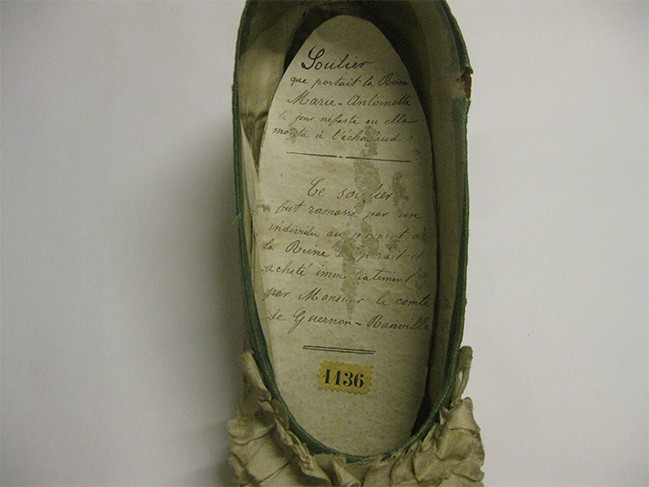 Soulier
que portait la Reine
Marie-Antoinette
le jour néfaste où elle
monta à l'échafaud.
Ce soulier
fut ramassé par un
individu au moment
la Reine
acheté immédiatement
par Monsieur le comte
de Guernon-Ranville
1136